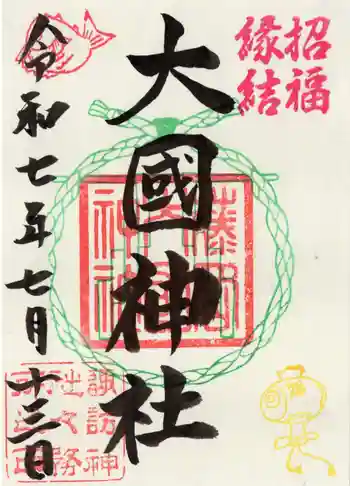 招福
縁結
大國神社
令和七年七月十三日
諏訪神
社々務
所之印